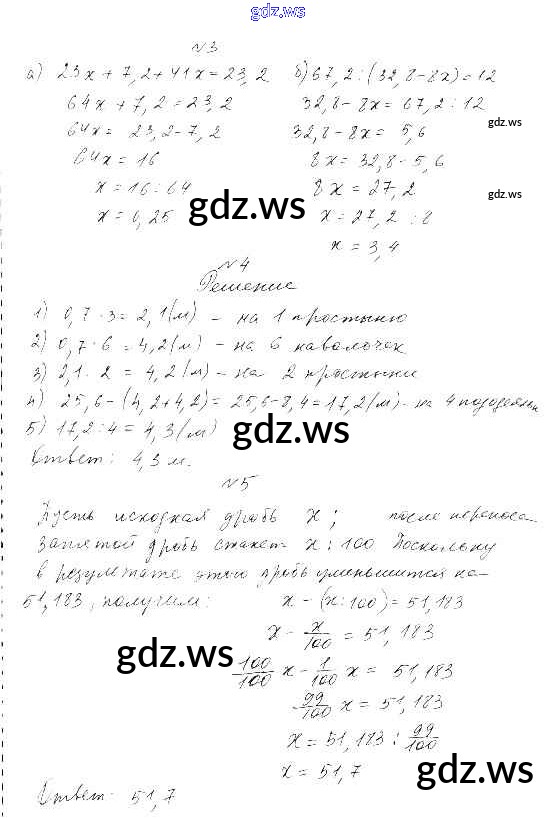 gdz.ws
N3
а) 23x + 7,2 + 41x = 23,2
64x + 7,2 = 23,2
64x = 23,2 - 7,2
64x = 16
x = 16 : 64
x = 0,25
б) 67,2 : (32,8 - 8x) = 12
32,8 - 8x = 67,2 : 12
gdz.ws
32,8 - 8x = 5,6
8x = 32,8 - 5,6
8x = 27,2
gdz.ws
x = 27,2 : 8
x = 3,4
gdz.ws
N4
Решение
1) 0,7 · 3 = 2,1 (м) - на 1 простыню
2) 0,7 · 6 = 4,2 (м) - на 6 наволочек
3) 2,1 · 2 = 4,2 (м) - на 2 простыни
4) 25,6 - (4,2 + 4,2) = 25,6 - 8,4 = 17,2 (м) - на 4
5) 17,2 : 4 = 4,3 (м)
gdz.ws
Ответ: 4,3 м.
N5
Пусть исходная дробь x; после переноса
запятой дробь станет x : 100 Поскольку
в результате этого дробь уменьшится на
51,183, получим:
x - (x : 100) = 51,183
x - x/100 = 51,183
gdz.ws
100/100 x - 1/100 x = 51,183
99/100 x = 51,183
x = 51,183 : 99/100
x = 51,7
gdz.ws
Ответ: 51,7